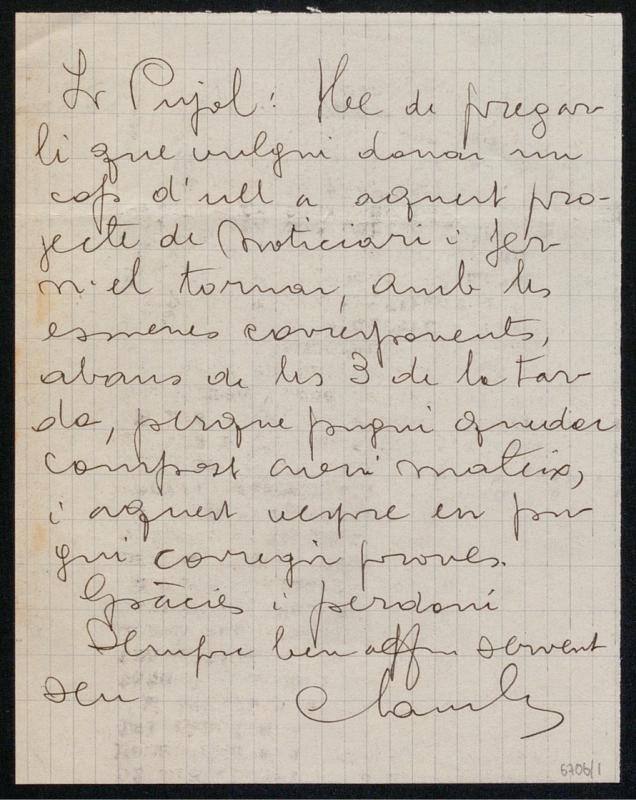 Sr Pujol: Hec de pregar-
li que vulgui donar un
cop d'ull a aquest pro-
jecte de Noticiari i fer-
m'el tornar, amb les
esmenes corresponents,
abans de les 3 de la tar-
da, perque pugui quedar
compost avui mateix,
i aquest vespre en pu-
gui corregir proves.
Gràcies i perdoni
Sempre ben affm servent
seu
6706/1